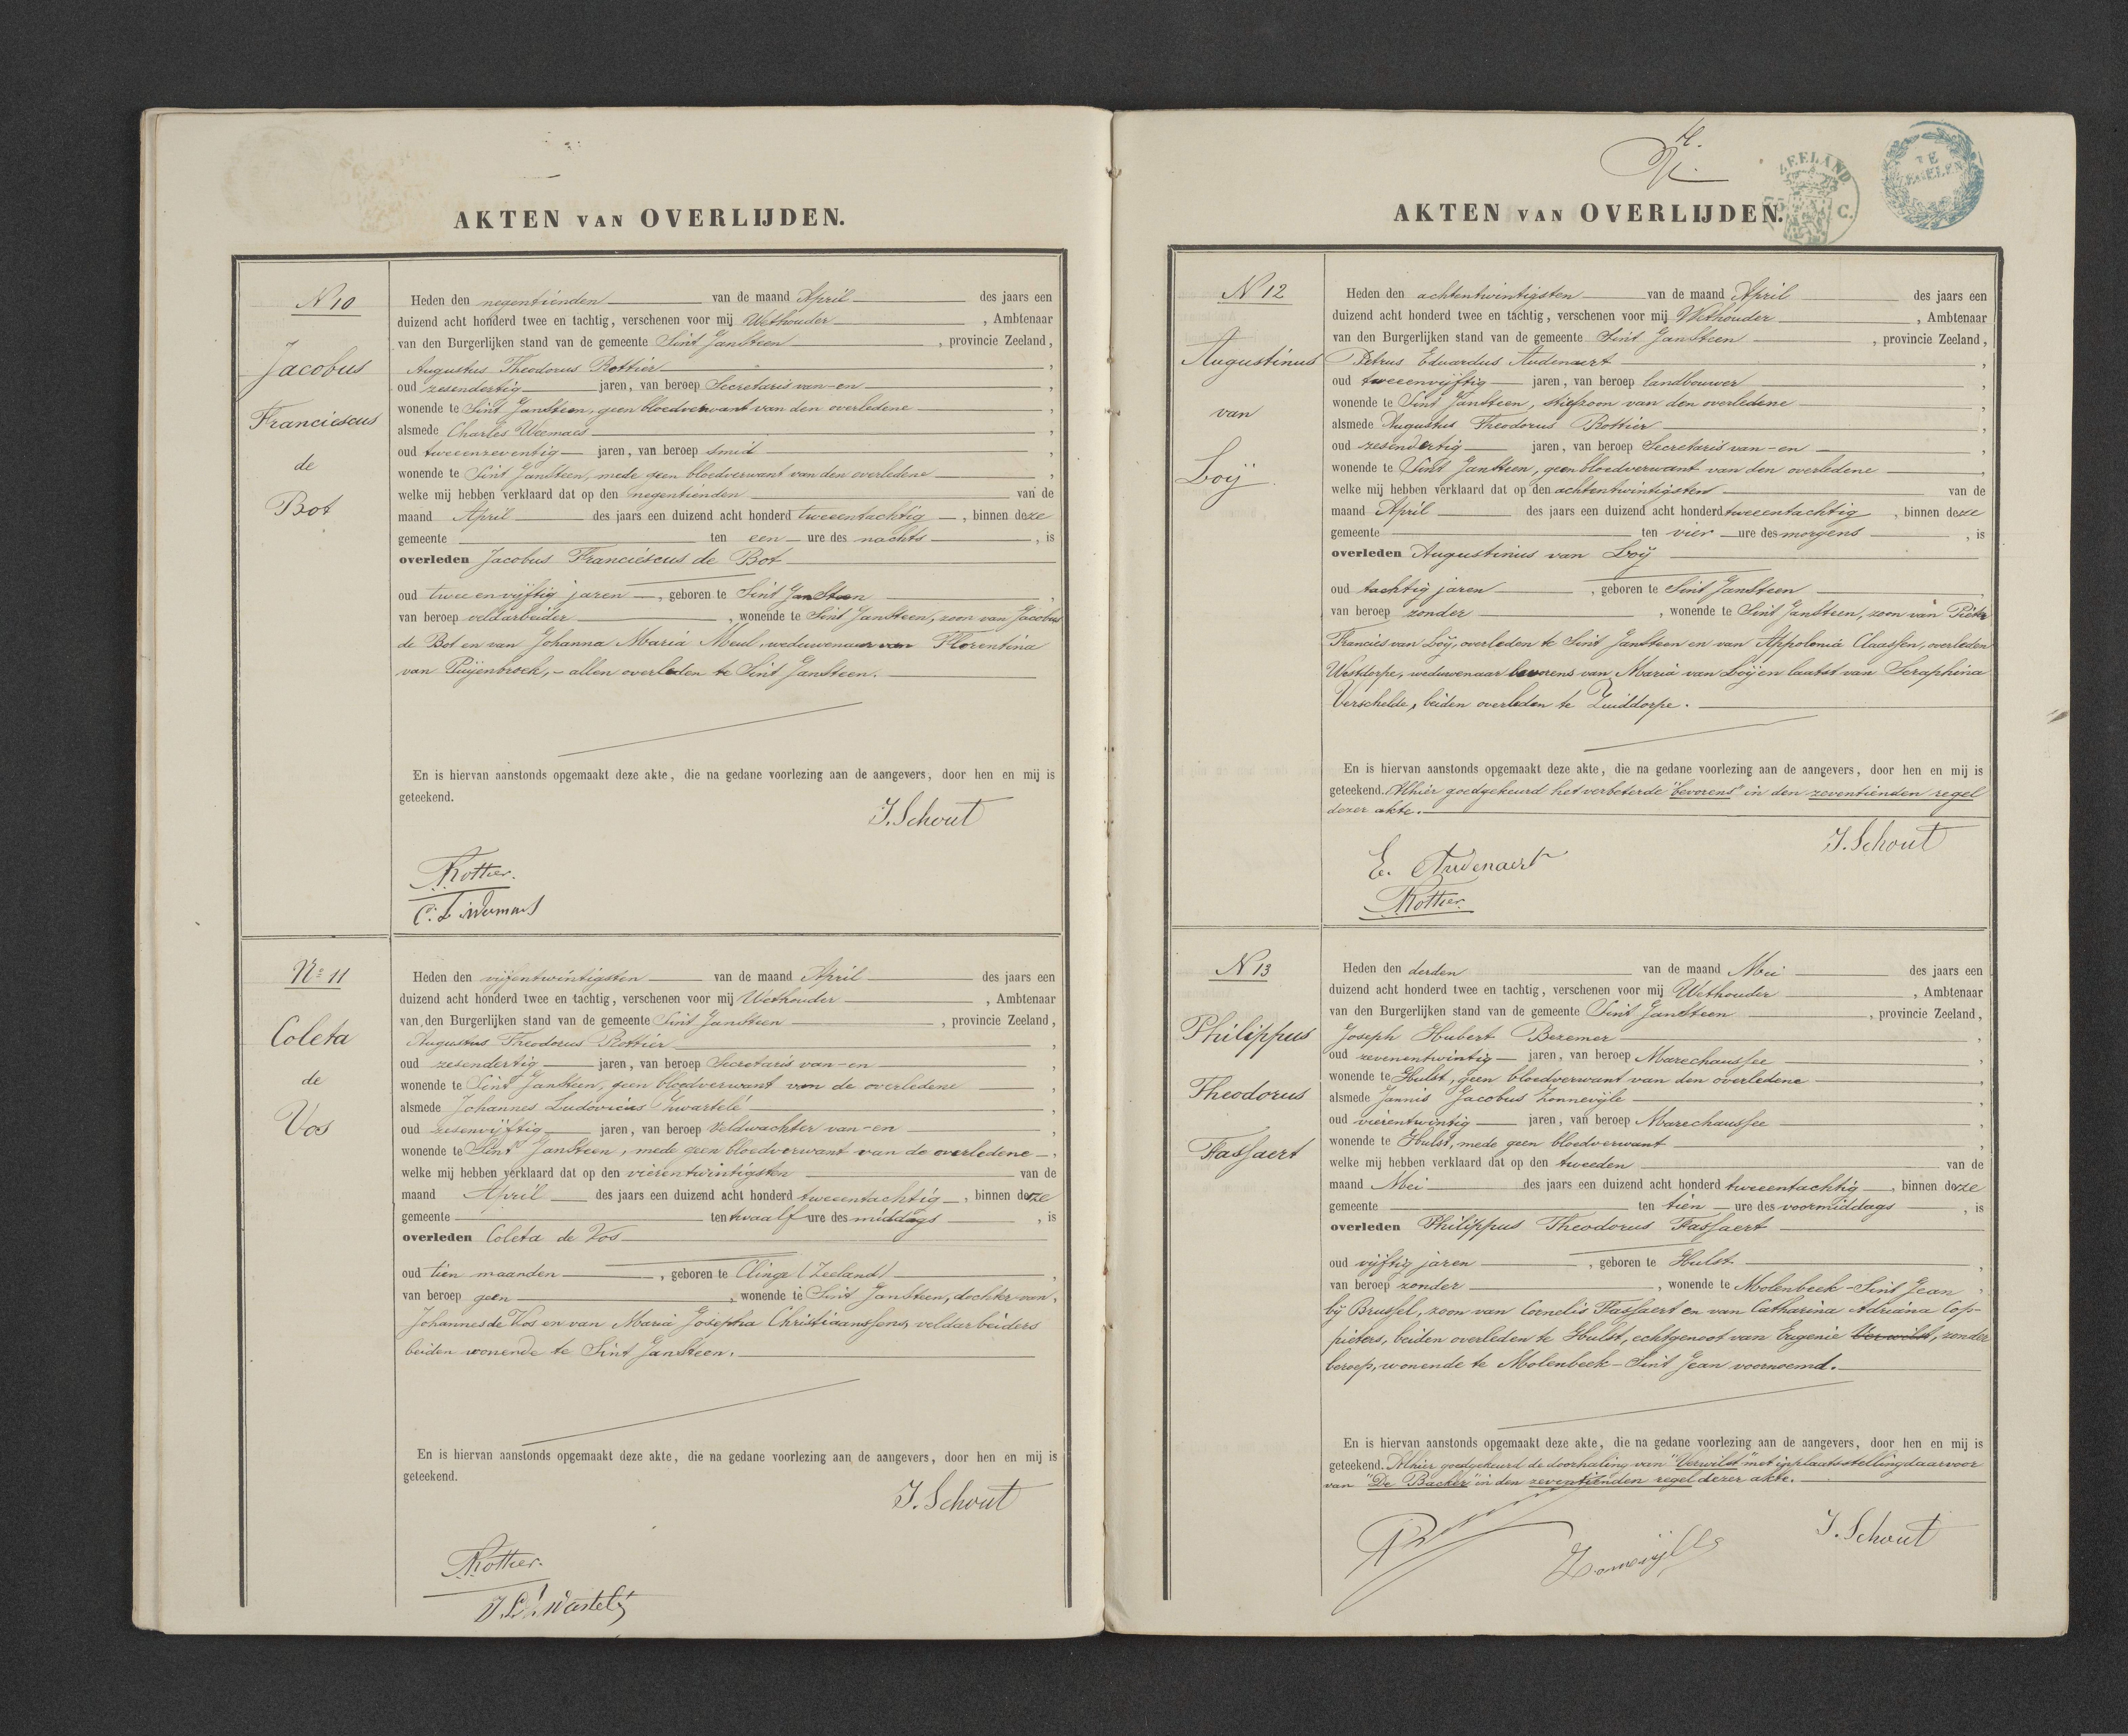 AKTEN VAN OVERLIJDEN.
N 10
Jacobus
Franciescus
de
Bot
Heden den negentienden van de maand April des jaars een
duizend acht honderd twee en tachtig, verschenen voor mij Wethouder, Ambtenaar
van den Burgerlijken stand van de gemeente Sint JanSteen, provincie Zeeland,
Augustus Theodorus Rottier,
oud zesendertig jaren, van beroep Secretaris van-en,
wonende te Sint JanSteen, geen bloedverwant van den overledene,
alsmede Charles Weemaes,
oud tweeenzeventig jaren, van beroep smid,
wonende te Sint JanSteen, mede geen bloedverwant van den overledene,
welke mij hebben verklaard dat op den negentienden van de
maand April des jaars een duizend acht honderd tweeentachtig, binnen deze
gemeente ten een ure des nachts, is
overleden Jacobus Franciescus de Bot
oud twee en vijftig jaren, geboren te Sint JanSteen,
van beroep veldarbeider, wonende te Sint JanSteen, zoon van Jacobus
de Bot en van Johanna Maria Meul, weduwenaar van Florentina
van Puijenbroek, - allen overleden te Sint JanSteen.
En is hiervan aanstonds opgemaakt deze akte, die na gedane voorlezing aan de aangevers, door hen en mij is
geteekend.
J. Schout
Rottier.
C. L. Weemaes
No 11
Coleta
de
Vos
Heden den vijfentwintigsten van de maand April des jaars een
duizend acht honderd twee en tachtig, verschenen voor mij Wethouder, Ambtenaar
van den Burgerlijken stand van de gemeente Sint JanSteen, provincie Zeeland,
Augustus Theodorus Rottier,
oud zesendertig jaren, van beroep Secretaris van-en,
wonende te Sint JanSteen, geen bloedverwant van de overledene,
alsmede Johannes Ludovicus Zwartelé,
oud zesenvijftig jaren, van beroep Veldwachter van-en,
wonende te Sint JanSteen, mede geen bloedverwant van de overledene,
welke mij hebben verklaard dat op den vierentwintigsten van de
maand April des jaars een duizend acht honderd tweeentachtig, binnen deze
gemeente ten twaalf ure des middags, is
overleden Coleta de Vos
oud tien maanden, geboren te Clinge (Zeeland),
van beroep geen, wonende te Sint JanSteen, dochter van,
Johannes de Vos en van Maria Josepha Christiaanssens, veldarbeiders
beiden wonende te Sint JanSteen.
En is hiervan aanstonds opgemaakt deze akte, die na gedane voorlezing aan de aangevers, door hen en mij is
geteekend.
J. Schout
Rottier.
AKTEN VAN OVERLIJDEN.
ZEELAND
C.
TE
ZEGELEN
N 12
Augustinus
van
Loÿ.
Heden den achtentwintigsten van de maand April des jaars een
duizend acht honderd twee en tachtig, verschenen voor mij Wethouder, Ambtenaar
van den Burgerlijken stand van de gemeente Sint JanSteen, provincie Zeeland,
Petrus Eduardus Audenaert,
oud tweeenvijftig jaren, van beroep landbouwer,
wonende te Sint JanSteen, stiefzoon van den overledene,
alsmede Augustus Theodorus Rottier,
oud zesendertig jaren, van beroep Secretaris van-en,
wonende te Sint JanSteen, geen bloedverwant van den overledene,
welke mij hebben verklaard dat op den achtentwintigsten van de
maand April des jaars een duizend acht honderd tweeentachtig, binnen deze
gemeente ten vier ure des morgens, is
overleden Augustinus van Loÿ
oud tachtig jaren, geboren te Sint JanSteen,
van beroep zonder, wonende te Sint JanSteen, zoon van Pieter
Francies van Loÿ, overleden te Sint JanSteen en van Appolonia Claassen, overleden
Westdorpe, weduwenaar bevorens van Maria van Loÿ en laatst van Seraphina
Verschelde, beiden overleden te Zuiddorpe.
En is hiervan aanstonds opgemaakt deze akte, die na gedane voorlezing aan de aangevers, door hen en mij is
geteekend. Alhier goedgekeurd het verbeterde "bevorens" in den zeventienden regel
dezer akte.
J. Schout
E. Audenaert
Rottier.
N 13
Philippus
Theodorus
Fassaert
Heden den derden van de maand Mei des jaars een
duizend acht honderd twee en tachtig, verschenen voor mij Wethouder, Ambtenaar
van den Burgerlijken stand van de gemeente Sint JanSteen, provincie Zeeland,
Joseph Hubert Bezemer,
oud zevenentwintig jaren, van beroep Marechaussee,
wonende te Hulst, geen bloedverwant van den overledene,
alsmede Jannis Jacobus Zonnevijle,
oud vierentwintig jaren, van beroep Marechaussee,
wonende te Hulst, mede geen bloedverwant,
welke mij hebben verklaard dat op den tweeden van de
maand Mei des jaars een duizend acht honderd tweeentachtig, binnen deze
gemeente ten tien ure des voormiddags, is
overleden Philippus Theodorus Fassaert
oud vijftig jaren, geboren te Hulst,
van beroep zonder, wonende te Molenbeek-Sint Jean,
bij Brussel, zoon van Cornelis Fassaert en van Catharina Adriana Cop-
pieters, beiden overleden te Hulst, echtgenoot van Eugenie Verwilst, zonder
beroep, wonende te Molenbeek-Sint Jean voornoemd.
En is hiervan aanstonds opgemaakt deze akte, die na gedane voorlezing aan de aangevers, door hen en mij is
geteekend. Alhier goedgekeurd de doorhaling van "Verwilst" met inplaatsstelling daarvoor
van "De Backer" in den zeventienden regel dezer akte.
J. Schout
Zonnevijlle